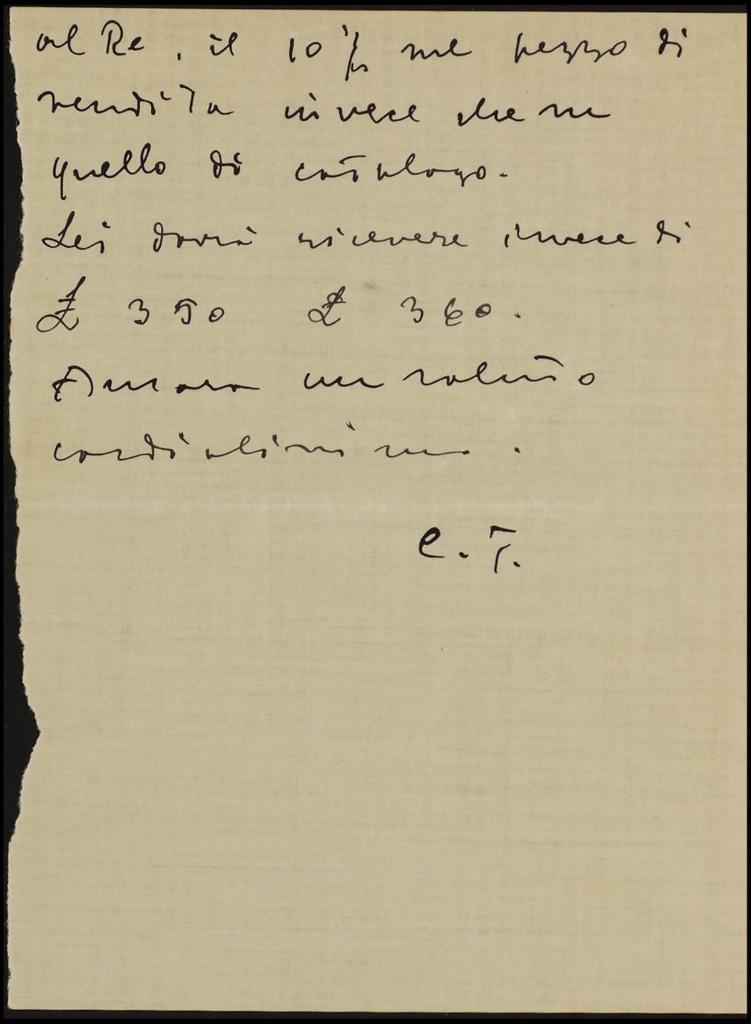 al Re, il 10% sul prezzo di
vendita invece che su
quello di catalogo.
Lei dovrà ricevere invece di
£ 350 £ 360.
Ancora un saluto
cordialissimo.
C. T.